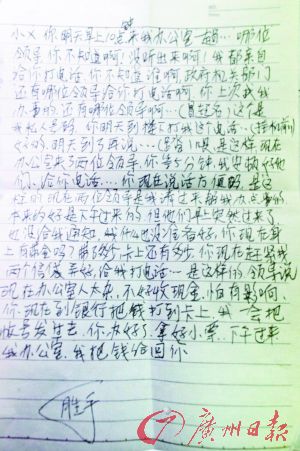 小X 你明天早上10点来我办公室一趟…哪位
领导,你不知道啊!没听出来啊!我都亲自
给你打电话,你不知道谁啊,政府机关部门
还有哪位领导给你打电话啊,你上次找我
办事的,还有哪位领导啊…(冒起名)这个是
我私人号码,你明天到楼下打我这电话…(挂机前)
好的,明天到了再说…(早有)喂,是这样,现在
办公室来了两位领导,你等5分钟,我安排好他
们,给你电话….你现在说话方便吗,是这
样的,现在两位领导是我请过来帮我办点事的
本来约好是下午过来的,但他们早上突然过来了
也没给我通知,我什么也没准备好,你现在身
上有现金吗?带了多少,卡上还有多少,你现在赶紧找
两个信封弄好,给我打电话…是这样的,领导说
现在办公室人太杂,不好收现金,怕有影响,
你现在到银行把钱打到卡上,我一会把
帐号发过去,你办好了,拿好小票..下午过来
我办公室,我把钱给回你.
胜手
广州日报